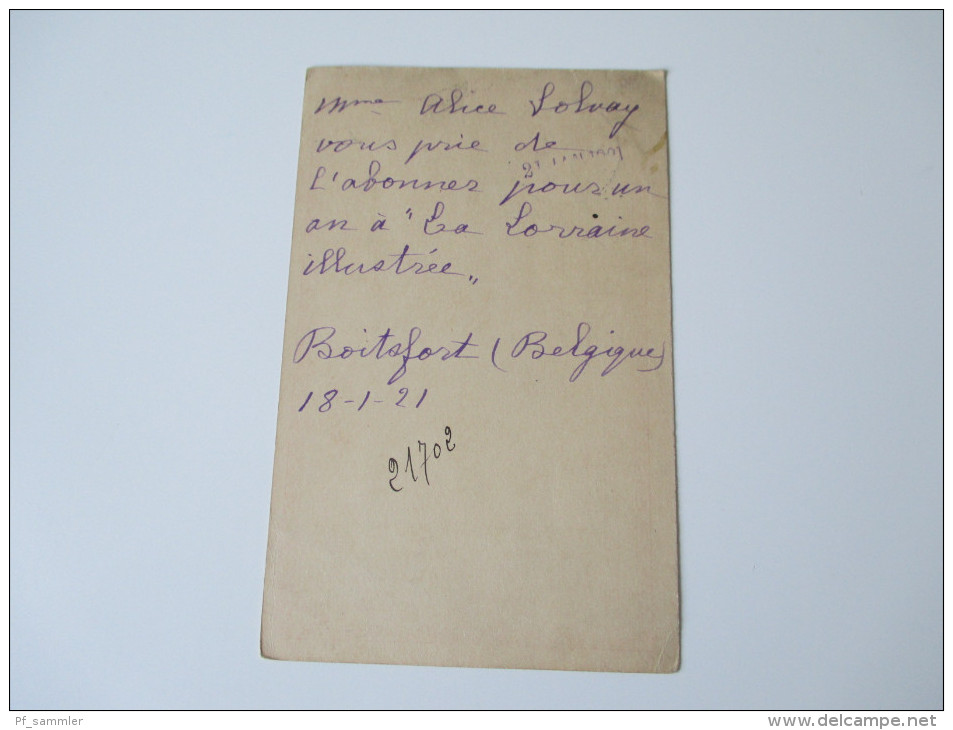 Mme Alice Solvay
vous prie de
l'abonner pour un
an à "La Lorraine
illustrée„
Boitsfort (Belgique)
18-1-21
21702
Pf_sammler
www.delcampe.net